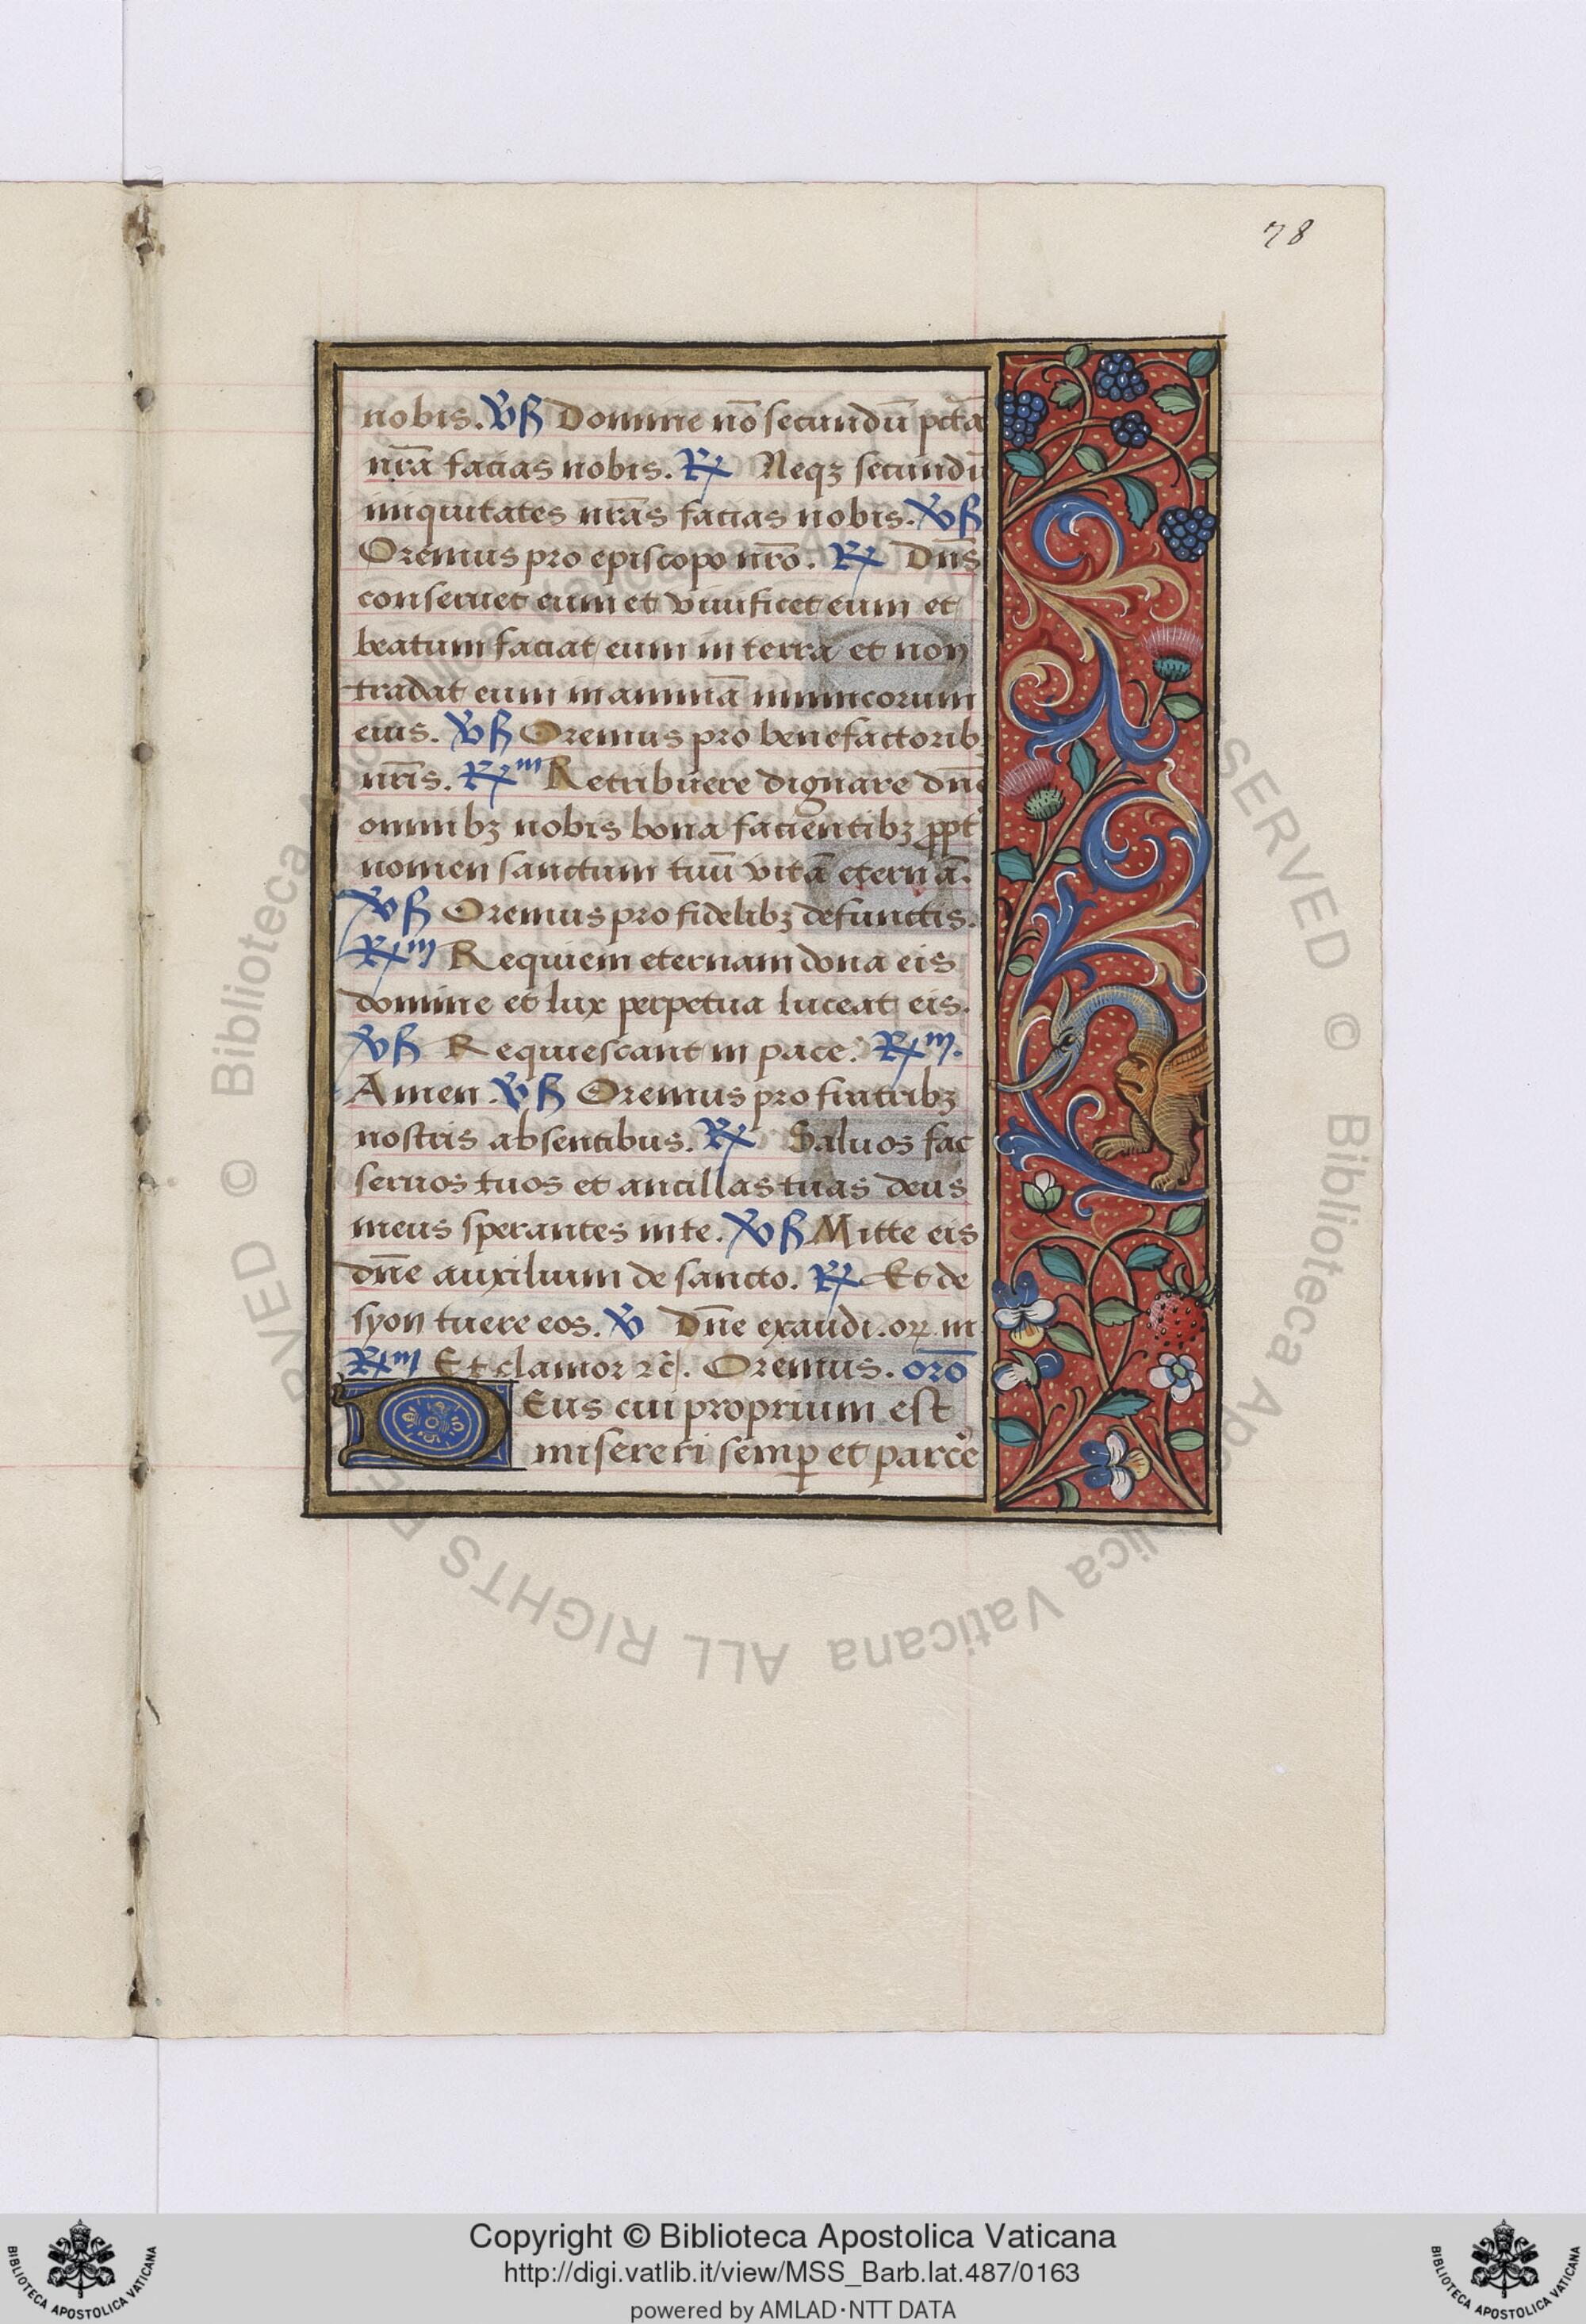 78
nobis. ℣ß Domine nō secundū pctā
nr̄a facias nobis. ℞ Neqꝫ secundū
iniquitates nr̄as facias nobis. ℣ß
Oremus pro episcopo nr̄o. ℞ Dn̄s
conseruet eum et viuificet eum et
beatum faciat eum in terra et non
tradat eum in animā inimicorum
eius. ℣ß Oremus pro benefactoribꝫ
nr̄is. ℞m Retribuere dignare dn̄e
omnibꝫ nobis bona facientibꝫ ꝓpt̕
nomen sanctum tuū vitā eternā.
℣ß Oremus pro fidelibꝫ defunctis.
℞m Requiem eternam dona eis
domine et lux perpetua luceat eis.
℣ß Requiescant in pace. ℞m.
Amen. ℣ß Oremus pro fratribꝫ
nostris absentibus. ℞ Saluos fac
seruos tuos et ancillas tuas deus
meus sperantes in te. ℣ß Mitte eis
dn̄e auxilium de sancto. ℞ Et de
syon tuere eos. ℣ Dn̄e exaudi. oꝝ. m
℞m Et clamor ⁊c̄. Oremus. orō
Deus cui proprium est
misereri semꝑ et parcẽ
© Biblioteca Apostolica Vaticana ALL RIGHTS RESERVED
Copyright © Biblioteca Apostolica Vaticana
http://digi.vatlib.it/view/MSS_Barb.lat.487/0163
powered by AMLAD·NTT DATA
BIBLIOTECA APOSTOLICA VATICANA
BIBLIOTECA APOSTOLICA VATICANA